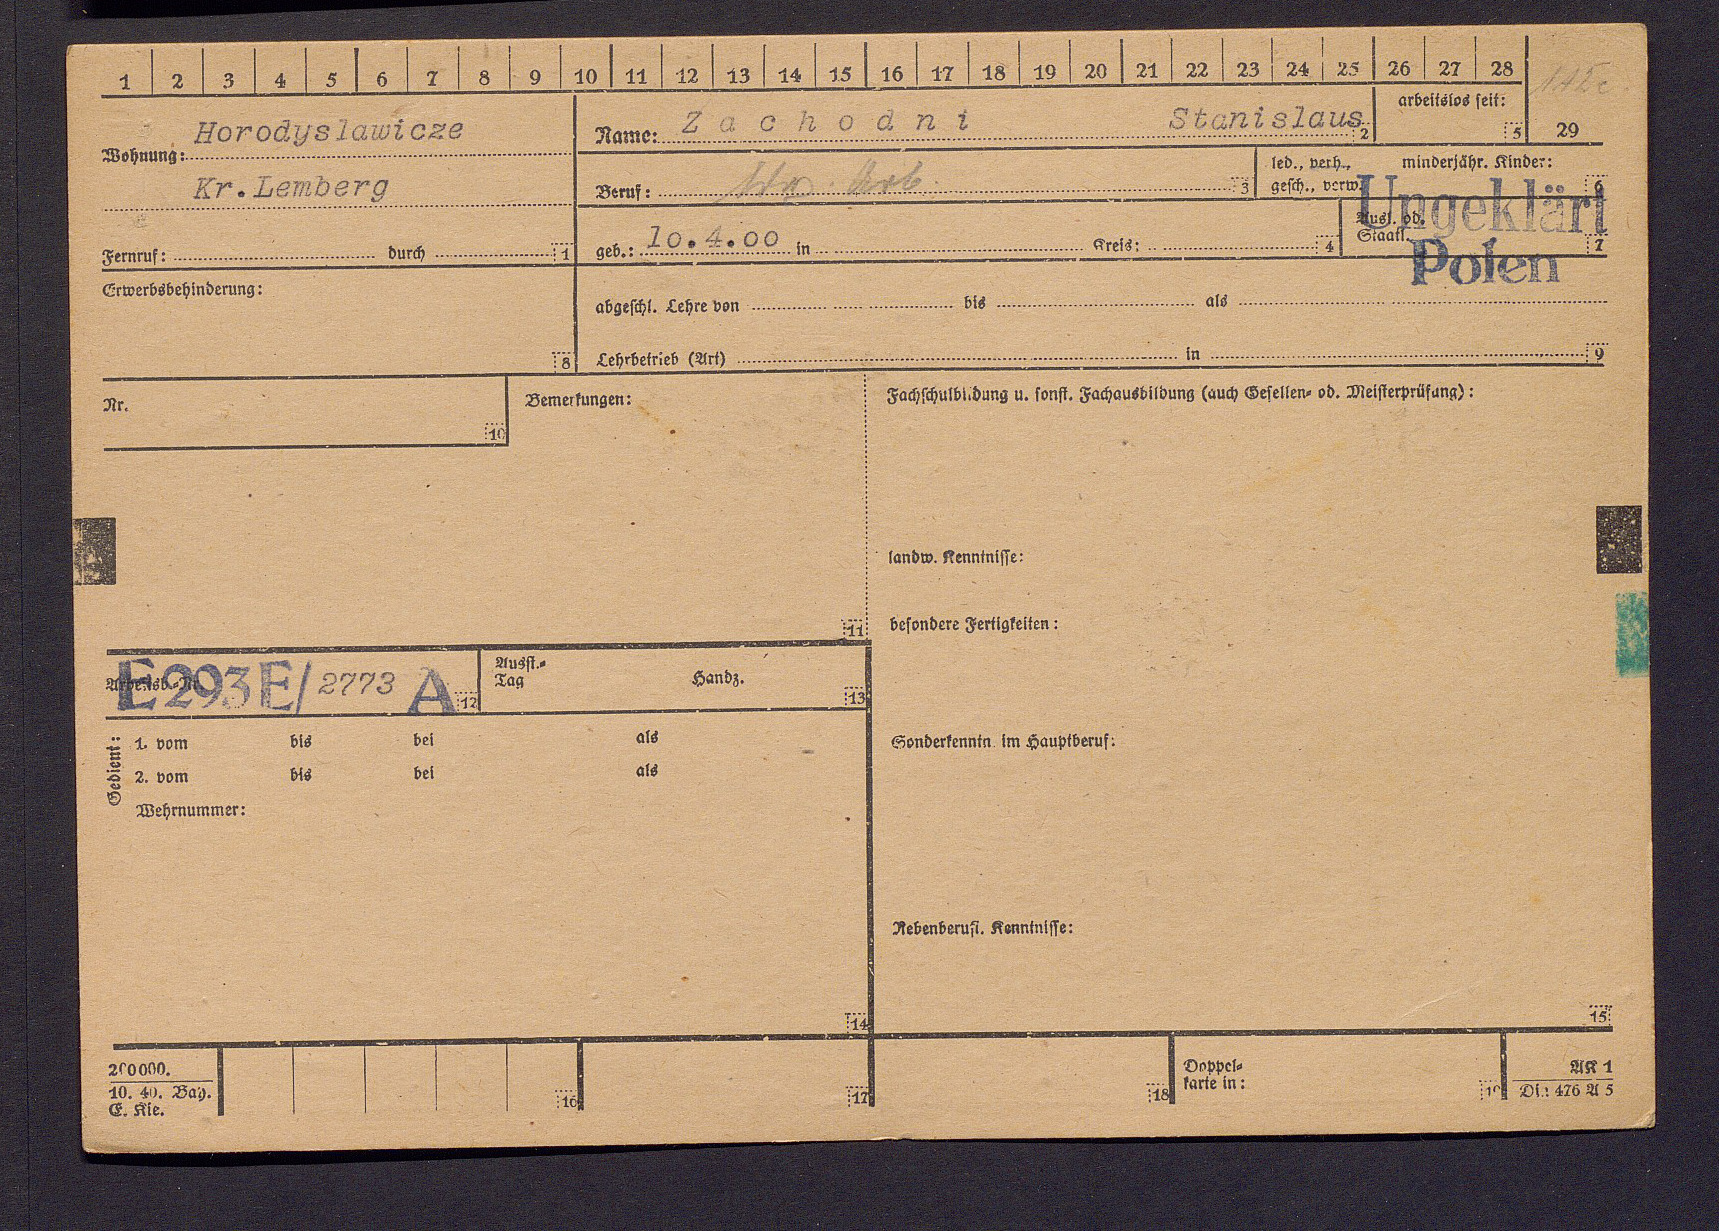 1 2 3 4 5 6 7 8 9 10 11 12 13 14 15 16 17 18 19 20 21 22 23 24 25 26 27 28
Wohnung: Horodyslawicze
Kr.Lemberg
Fernruf: durch 1
Name: Zachodni Stanislaus 2
arbeitslos seit: 5
29
Beruf: Arb. 3
led., verh., gesch., verw.
minderjähr. Kinder: 6
geb.: 10.4.00 in Kreis: 4
Ausl. od. Staatl. 7
Ungeklärt
Polen
Erwerbsbehinderung:
8
abgeschl. Lehre von bis als
Lehrbetrieb (Art) in 9
Nr.
10
Bemerkungen:
11
Fachschulbildung u. sonst. Fachausbildung (auch Gesellen- od. Meisterprüfung):
landw. Kenntnisse:
besondere Fertigkeiten:
Arbeitsb.-Nr. E293E/2773 A 12
Ausst.-
Tag Handz.
13
Gedient:
1. vom bis bei als
2. vom bis bei als
Wehrnummer:
14
Sonderkenntn. im Hauptberuf:
Nebenberufl. Kenntnisse:
15
200000.
10. 40. Bay.
E. Kie.
16
17
18
Doppel-
karte in:
19
AK 1
Di.: 476 A 5